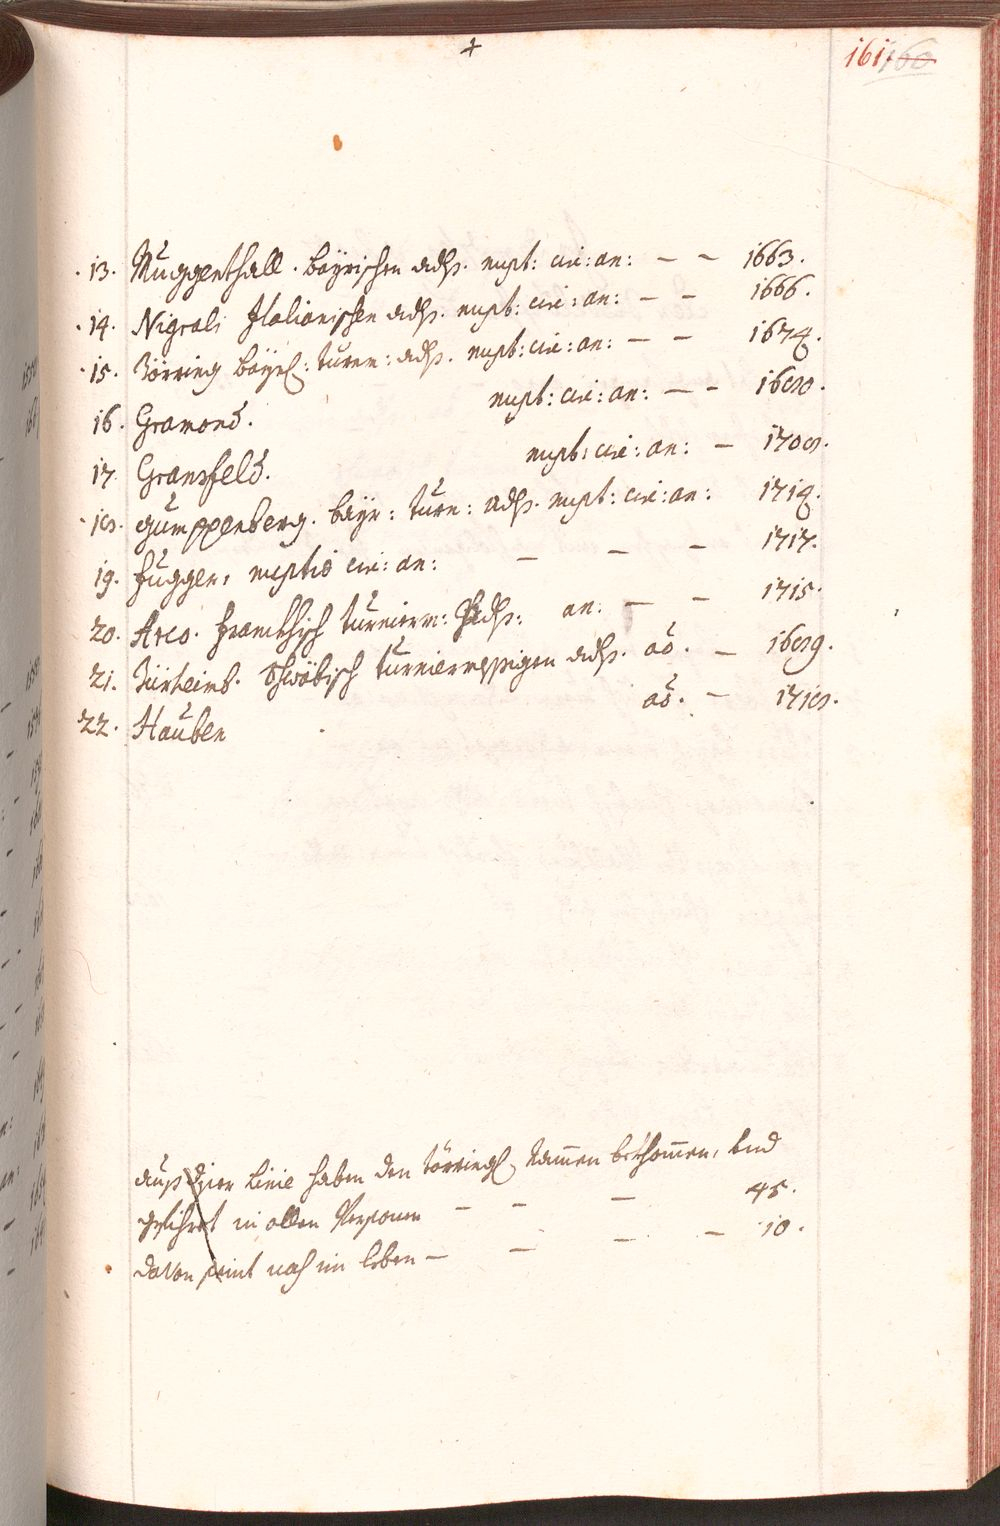 +
161 160
13. Muggenthall. bäyrischen adls. nupt: circ: an: — — 1663.
14. Nigroli Italianischen adls. nupt: circ: an: — — 1666.
15. Törring bäyrl: turn: adls. nupt: circ: an: — — 1674.
16. Gramond. nupt: circ: an: — — 1680.
17. Gransfeld. nupt: circ: an: — 1708.
18. Gumppenberg. bäyr: turn: adls. nupt: circ: an: 1714.
19. Fugger, nuptis circ: an: — — — 1717.
20. Arco. Franckhisch turnierm: adls: an: — — 1715.
21. Türheimb. Schwäbisch turniermessigen adls. aō. — 1689.
22. Hauben aō. — 1718.
auß diser Linie haben den törringl. Nammen bekhommen, und
gefihret in allen Persohnen — — — 45.
davon seint noch im leben — — — — 10.